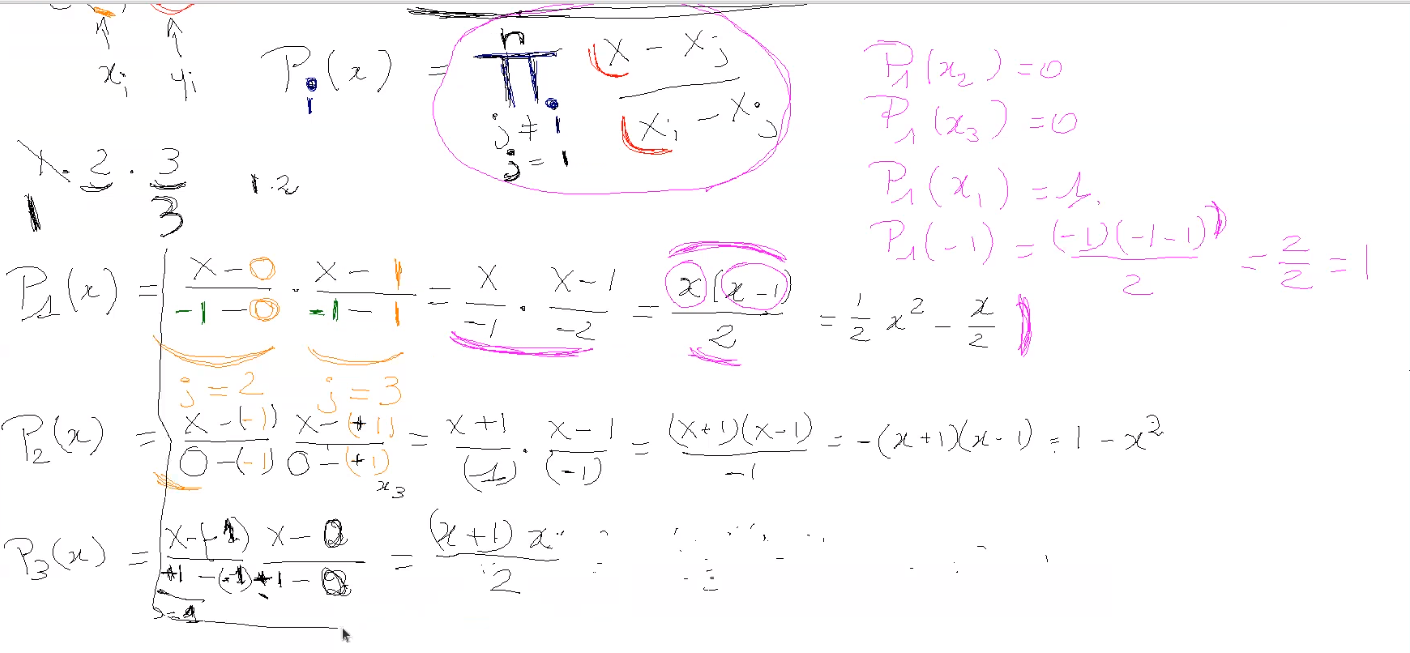 x_i y_i
P_i(x) = ∏_{j≠i, j=1}^{n} (x - x_j)/(x_i - x_j)
P_1(x_2) = 0
P_1(x_3) = 0
1·2
P_1(x_1) = 1.
P_1(-1) = (-1)(-1-1)/2 = 2/2 = 1
P_1(x) = (x-0)/(-1-0) · (x-1)/(-1-1) = x/-1 · (x-1)/-2 = x(x-1)/2 = 1/2 x² - x/2
j=2 j=3
P_2(x) = (x-(-1))/(0-(-1)) (x-(+1))/(0-(+1)) = (x+1)/(1) · (x-1)/(-1) = (x+1)(x-1)/-1 = -(x+1)(x-1) = 1 - x²
x_3
P_3(x) = (x-(-1))/(+1-(-1)) (x-0)/(+1-0) = (x+1)x/2